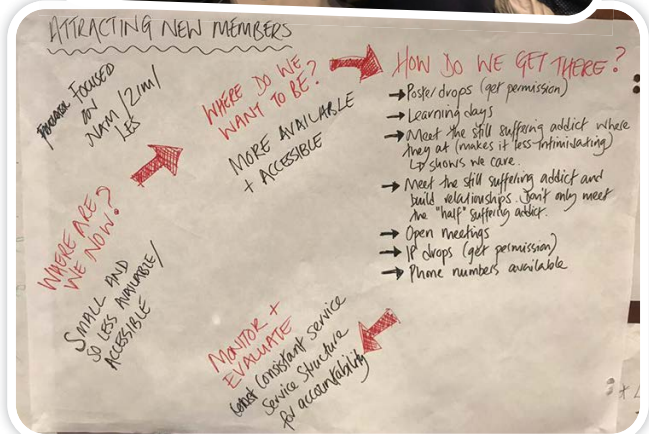 ATTRACTING NEW MEMBERS
FOCUSED
ON
NAM/ZIM/
LES
WHERE ARE
WE NOW?
SMALL AND
SO LESS AVAILABLE/
ACCESSIBLE
WHERE DO WE
WANT TO BE?
MORE AVAILABLE
+ ACCESSIBLE
HOW DO WE GET THERE?
Poster drops (get permission)
Learning days
Meet the still suffering addict where
they at (makes it less-intimivating)
↳ shows we care.
Meet the still suffering addict and
build relationships. Don't only meet
the "half" suffering addict.
Open meetings
IP drops (get permission)
Phone numbers available
MONITOR +
EVALUATE
Consistant service
Service Structure
for accountability